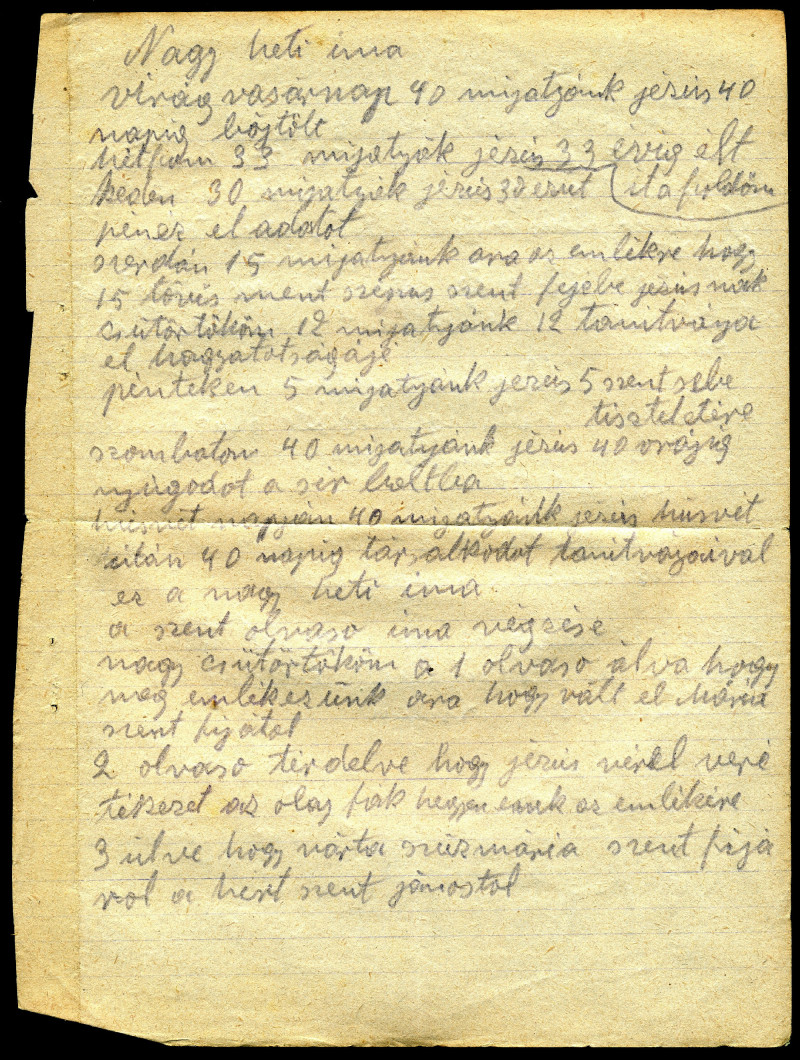 Nagy heti ima
virág vasárnap 40 mijatyánk jézus 40
napig böjtölt
hétfőm 33 mijatyák jézus 33 évig élt
keden 30 mijatyák jézus 30 ezüt it a fuldöm
pénéz el adatot
szerdán 15 mijatyánk ara az emlékre hogy
15 tövis ment szent fejébe jézusnak
csütörtököm 12 mijatyánk 12 tanitványa
el hagyatotságájé
pénteken 5 mijatyánk jezús 5 szent sebe
tiszteletére
szombaton 40 mijatyánk jézus 40 orájig
nyúgodot a sir boltba
húsvét napján 40 mijatyánk jezus húsvét
után 40 napig társalkodot tanitványaival
ez a nagy heti ima
a szent olvaso ima végzése
nagy csütörtököm a 1 olvaso álva hogy
meg emlékezünk ara hogy vált el Mária
szent fijátol
2 olvaso térdelve hogy jézus vérel veré
tékezet az olaj fák hegyen enek az emlékére
3 ülve hogy várta szüzmária szent fijá
rol a hért szent jánostol